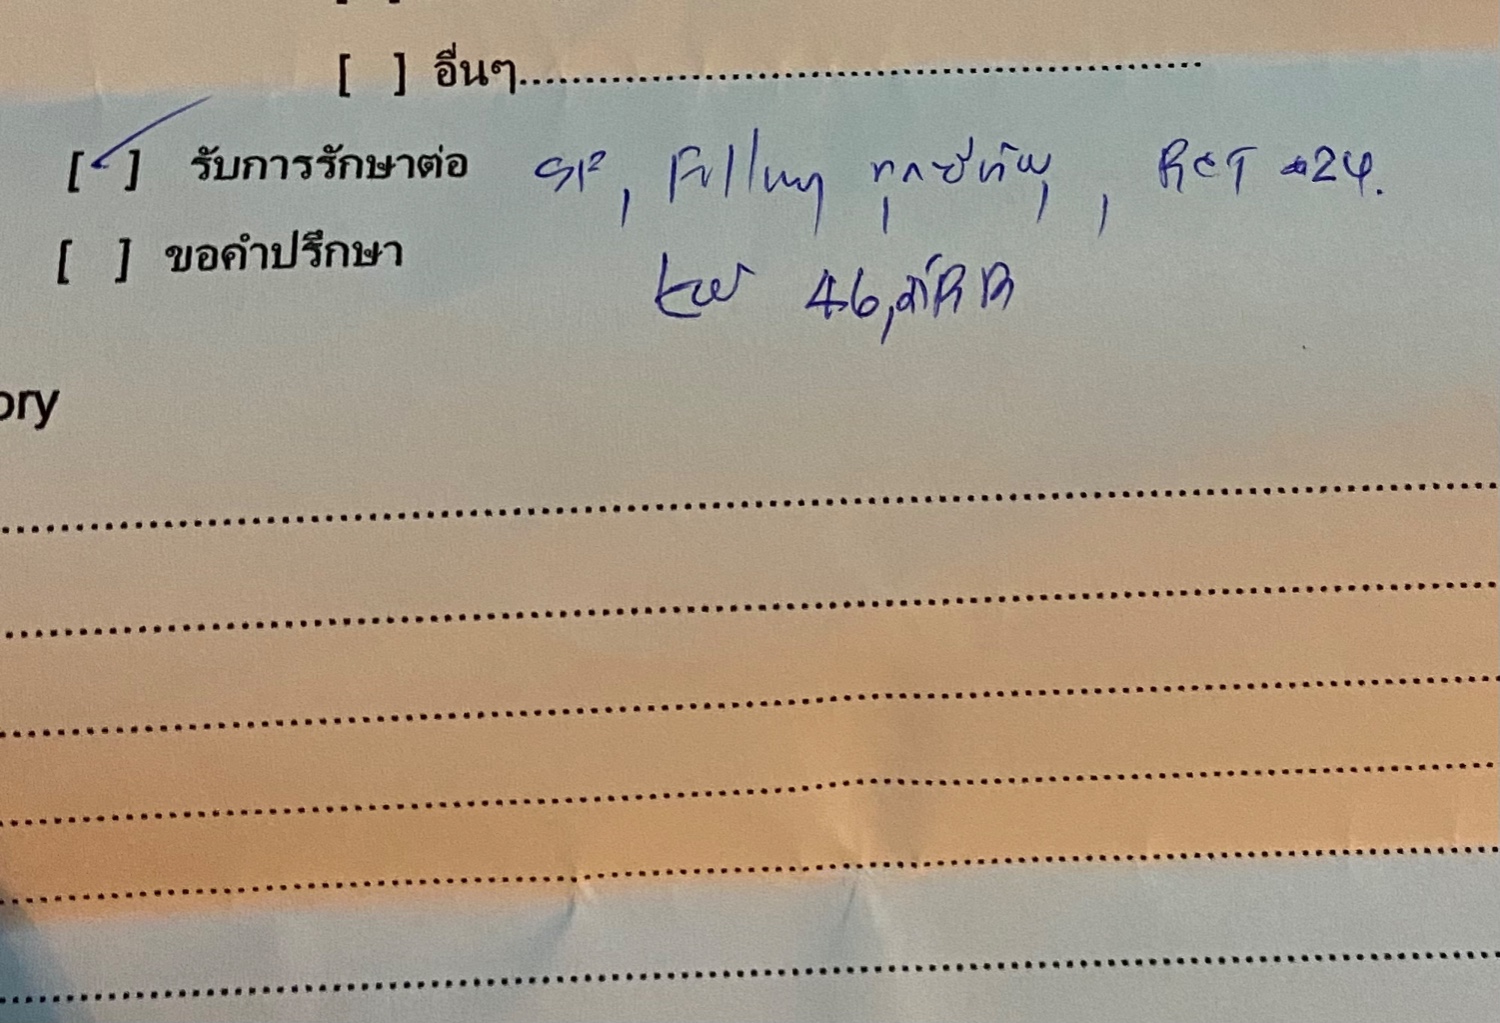 [ ] อื่นๆ..........................................................
[✓] รับการรักษาต่อ SP, Filling ทุกซี่ที่ผุ, RCT #24.
[ ] ขอคำปรึกษา 46,
ory